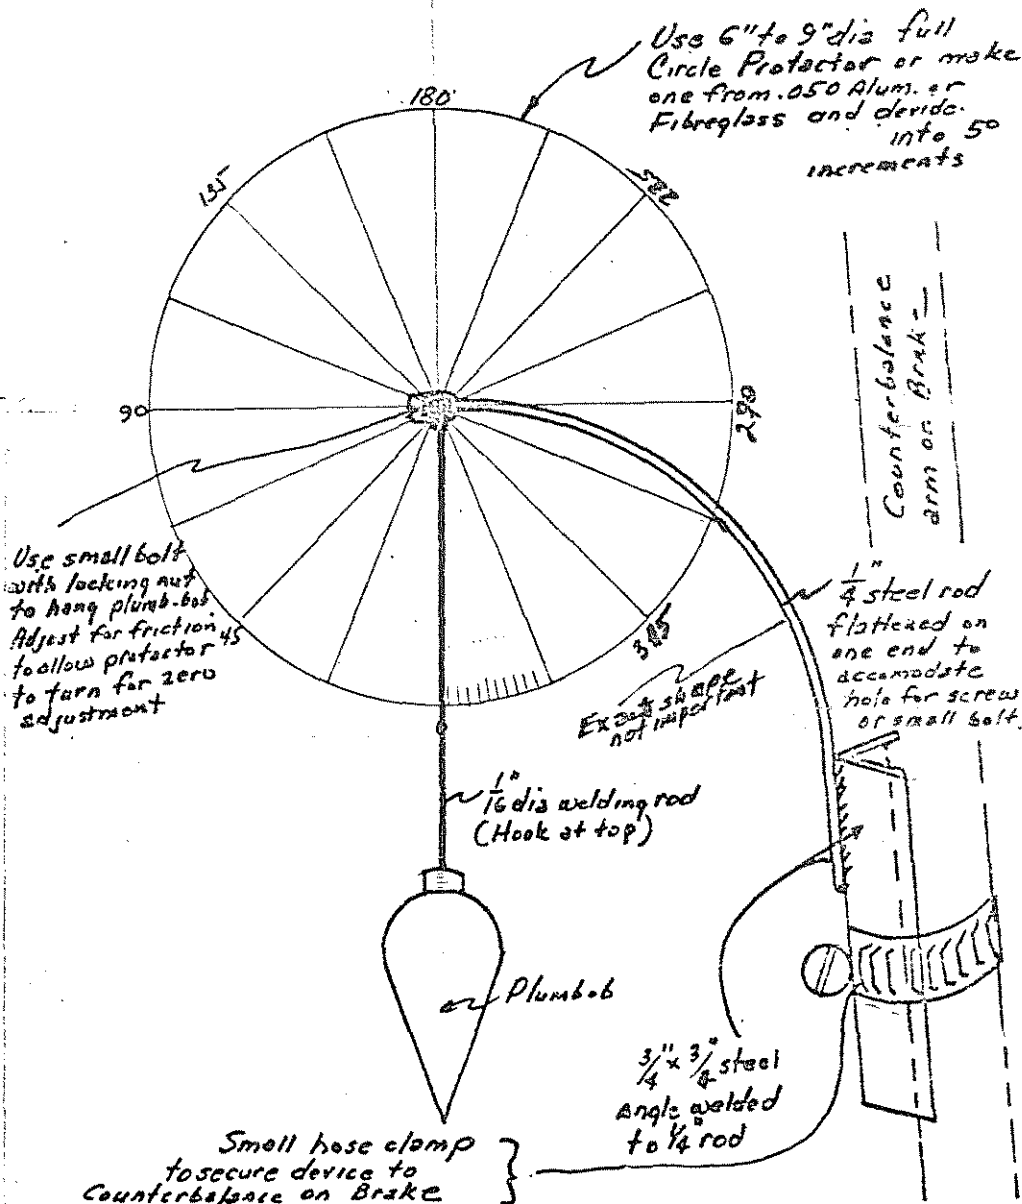 Use 6" to 9" dia full
Circle Protactor or make
one from .050 Alum. or
Fibreglass and devide
into 5°
increments
180
135
225
90
290
45
345
Counterbalance
arm on Brake
Use small bolt
with locking nut
to hang plumb-bob
Adjust for friction
to allow protactor
to turn for zero
adjustment
1/4" steel rod
flattened on
one end to
accomodate
hole for screw
or small bolt.
Exact shape
not important
1/16" dia welding rod
(Hook at top)
Plumbob
3/4" x 3/4" steel
angle welded
to 1/4" rod
Small hose clamp
to secure device to
Counterbalance on Brake